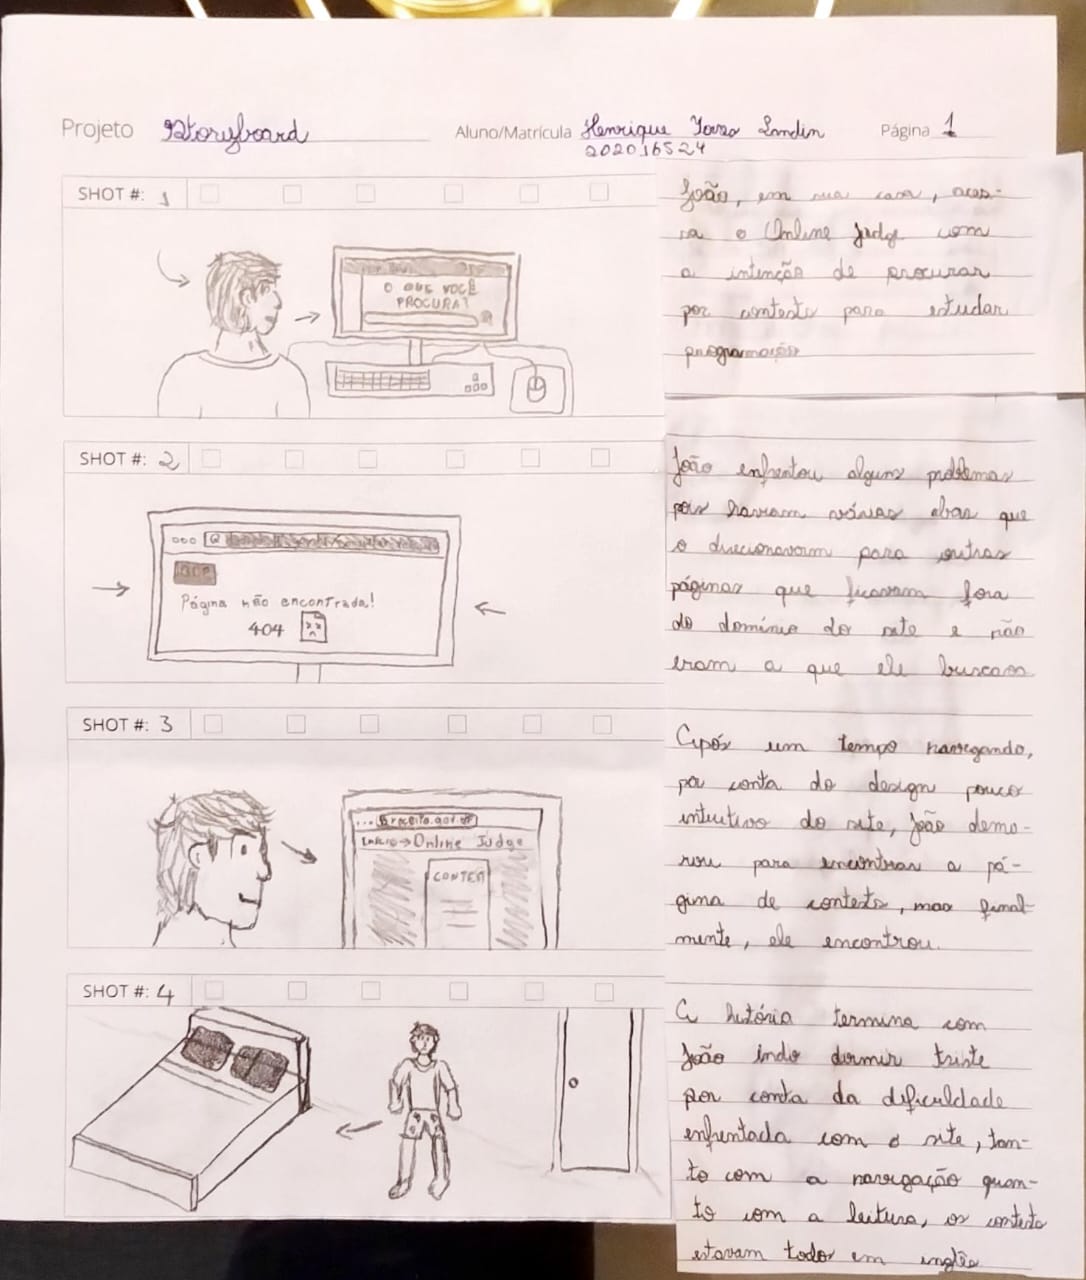 Projeto Storyboard Aluno/Matrícula Henrique Landin Página 1
202016524
SHOT #: 1
João, em sua casa, aces-
sa o Online Judge com
a intenção de procurar
por contests para estudar
programação
O QUE VOCÊ
PROCURA?
SHOT #: 2
João enfrentou alguns problemas
pois haviam várias abas que
o direcionavam para outras
páginas que ficavam fora
do domínio do site e não
eram a que ele buscava
Página não encontrada!
404
SHOT #: 3
Após um tempo navegando,
por conta do design pouco
intuitivo do site, João demo-
rou para encontrar a pá-
gina de contests, mas final-
mente, ele encontrou.
Início → Online Judge
CONTEST
SHOT #: 4
A história termina com
João indo dormir triste
por conta da dificuldade
enfrentada com o site, tan-
to com a navegação quan-
to com a leitura, os contests
estavam todos em inglês